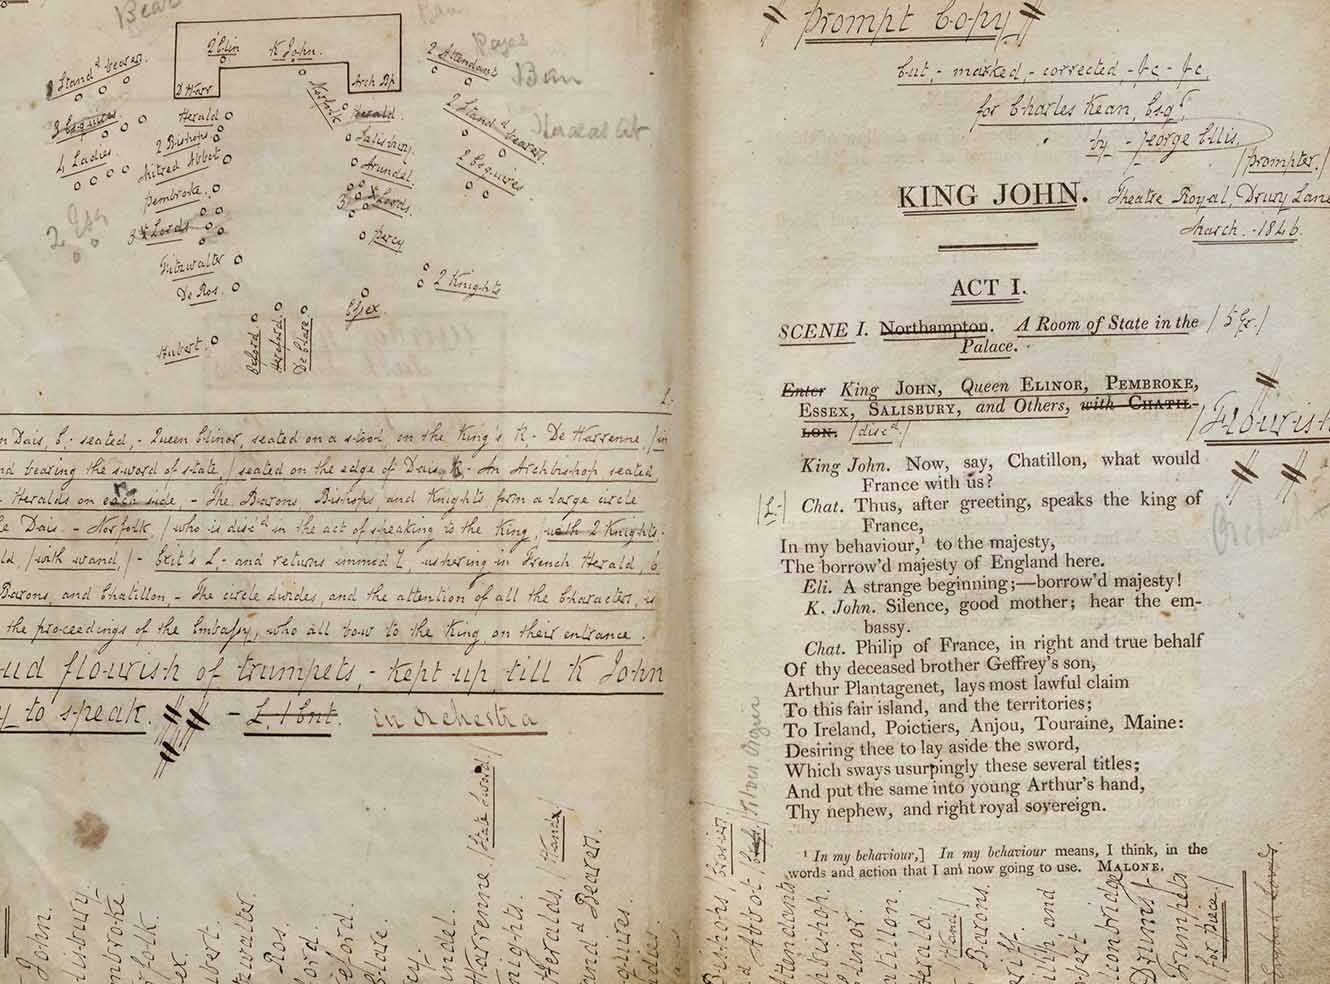 Bear
Ban
Pages
Ban
2 Stand.d bearers.
3 Esquires.
4 Ladies.
2 Esq
Q Elin
K John.
D Warr
Arch Bp
Norfolk
2 Attendants
2 Stand.d bearers
2 Esquires
Herald
2 Bishops
Mitred Abbot
Pembroke.
3 Lords
Fitzwalter
De Ros.
Hubert.
Herald
Salisbury.
Arundel.
3 Lords.
Percy
2 Knights
Essex.
Oxford
Hereford.
De Clare.
L.
n Dais, C, - seated, - Queen Elinor, seated on a stool, on the King's R, - De Warrenne, /in
nd bearing the sword of state, / seated on the edge of Dais - An Archbishop seated
- Heralds on each side, - The Barons, Bishops and Knights form a large circle
e Dais. - Norfolk, / who is disc.d in the act of speaking to the King, / with 2 Knights.
ld, /with wand, /- Exit's L, - and returns immed.y, ushering in French Herald, 6
Barons, and Chatillon, - The circle divides, and the attention of all the Characters, is
the proceedings of the Embassy, who all bow to the King, on their entrance.
ud flourish of trumpets, - kept up, till K John
y to speak. - L, 1 Ent. in Orchestra
John.
lisbury
mbroke
folk.
sex.
bert.
tzwalter
Ros.
ford.
reford.
Clare.
cy
ndel.
Warrenne /State Sword/
nights.
Heralds. /Wands/
and Bearers.
quires.
dies
// Prompt Copy //
Cut, - marked, - corrected, - &c - &c,
for Charles Kean, Esq.r,
by - George Ellis.
/Prompter./
KING JOHN.
Theatre Royal, Drury Lane
March. - 1846.
ACT I.
SCENE I. Northampton. A Room of State in the
Palace.
/5 Gr./
Enter King JOHN, Queen ELINOR, PEMBROKE,
ESSEX, SALISBURY, and Others, with CHATIL-
LON. /disc.d/
/Flourish
Orchest
King John. Now, say, Chatillon, what would
France with us?
/L-/
Chat. Thus, after greeting, speaks the king of
France,
In my behaviour,¹ to the majesty,
The borrow'd majesty of England here.
Eli. A strange beginning;—borrow'd majesty!
K. John. Silence, good mother; hear the em-
bassy.
Chat. Philip of France, in right and true behalf
Of thy deceased brother Geffrey's son,
Arthur Plantagenet, lays most lawful claim
To this fair island, and the territories;
To Ireland, Poictiers, Anjou, Touraine, Maine:
Desiring thee to lay aside the sword,
Which sways usurpingly these several titles;
And put the same into young Arthur's hand,
Thy nephew, and right royal sovereign.
¹ In my behaviour,] In my behaviour means, I think, in the
words and action that I am now going to use. MALONE.
Bishops /Crosier/
d Abbot
Attendants
hbishop.
Elinor.
atillon.
Herald. /Wand/
Barons.
riff.
illip and
bert
lconbridge
Drums
Trumpets
/for Piece/